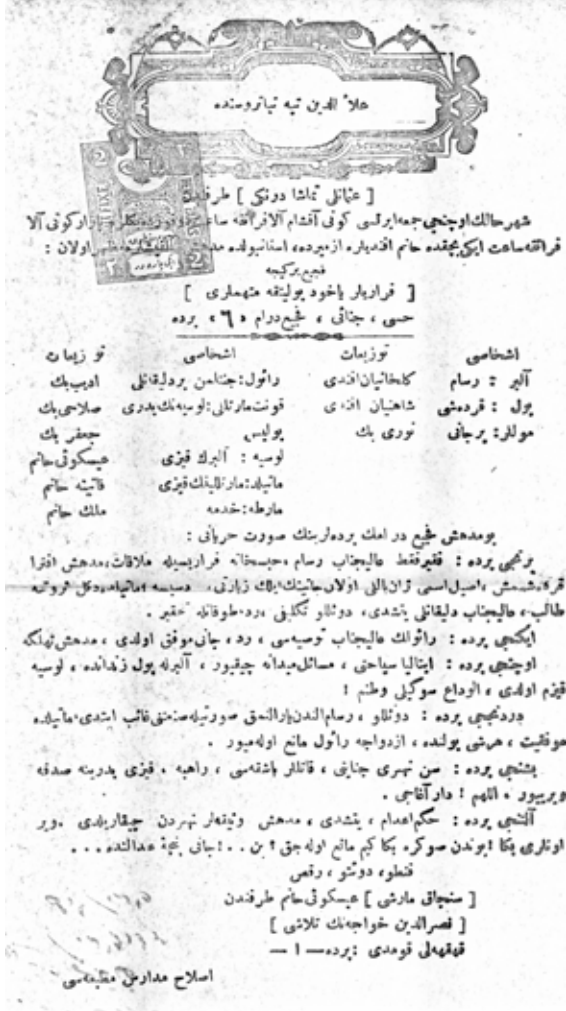 علاء الدين تپه تياتروسنده
[ عثمانلى تماشا دورقى ] طرفندن
شهر حالك اوچنجى جمعه ايرتسى كونى آقشام آلافرانقه ساعت بازار كونى آلا
فرانقه ساعت ايكى بچقده خانم افنديلره ازميرده، استانبولده مدهش اولان :
فجيع بر كيجه
[ فراريلر ياخود پوليتقه متهملرى ]
حسى ، جنائى ، فجيع درام «٦» پرده
اشخاصى توزيعات اشخاصى توزيعات
آلبر : رسام كلخانيان افندى رائول: جنا من بر دليقانلى اديب بك
پول : قرده شى شاهنيان افندى قونت مارتللى: لوسيه نك پدرى صلاحى بك
موللر: برجانى نورى بك پوليس جعفر بك
لوسيه : آلبرك قيزى خانم
ماتيلد: مارتللينك قيزى خانم
مارطه: خدمه ملك خانم
بو مدهش فجيع درامك پرده لرينك صورت جريانى :
برنجى پرده : فقير فقط عاليجناب رسام ، حبسخانه فراريسيله ملاقات، مدهش افترا
زيارتى، دسيسه
طالب، عاليجناب دليقانلى يتشدى، دوئللو تكليفى ، رد، طوقاتله تحقير .
ايكنجى پرده : رائولك عاليجناب توصيه سى ، رد ، جانى موفق اولدى ، مدهش تهلكه
اوچنجى پرده : ايتاليا سياحتى ، مسائل ميدانه چيقيور ، آلبرله پول زندانده ، لوسيه
قيزم اولدى ، الوداع سوكيلى وطنم !
دردنجى پرده : دوئللو ، رسام الندن يارالانمق صورتيله صنعتنى غائب ايتدى، ماتيلده
موفقيت ، هر شى يولنده ، ازدواجه رائول مانع اوله ميور .
بشنجى پرده : سن نهرى جنايتى ، قاتللر باشقه سى ، راهبه . قيزى پدرينه صدقه
ويريور . اللهم ! دار آغاجى .
آلتنجى پرده : حكم اعدام ، يتشدى ، مدهش وثيقه لر نهردن چيقاريلدى . وير
اونلرى بكا ! بوندن صوكره بكا كيم مانع اوله جق ؟ بن . . ! جانى پنجۀ عدالتده . . .
قنطو، دوئتو ، رقص
[ سنجاق مارشى ] خانم طرفندن
[ نصرالدين خواجه نك تلاشى ]
قهقهه لى قومدى : پرده — ١ —
اصلاح مدارس مطبعه سى